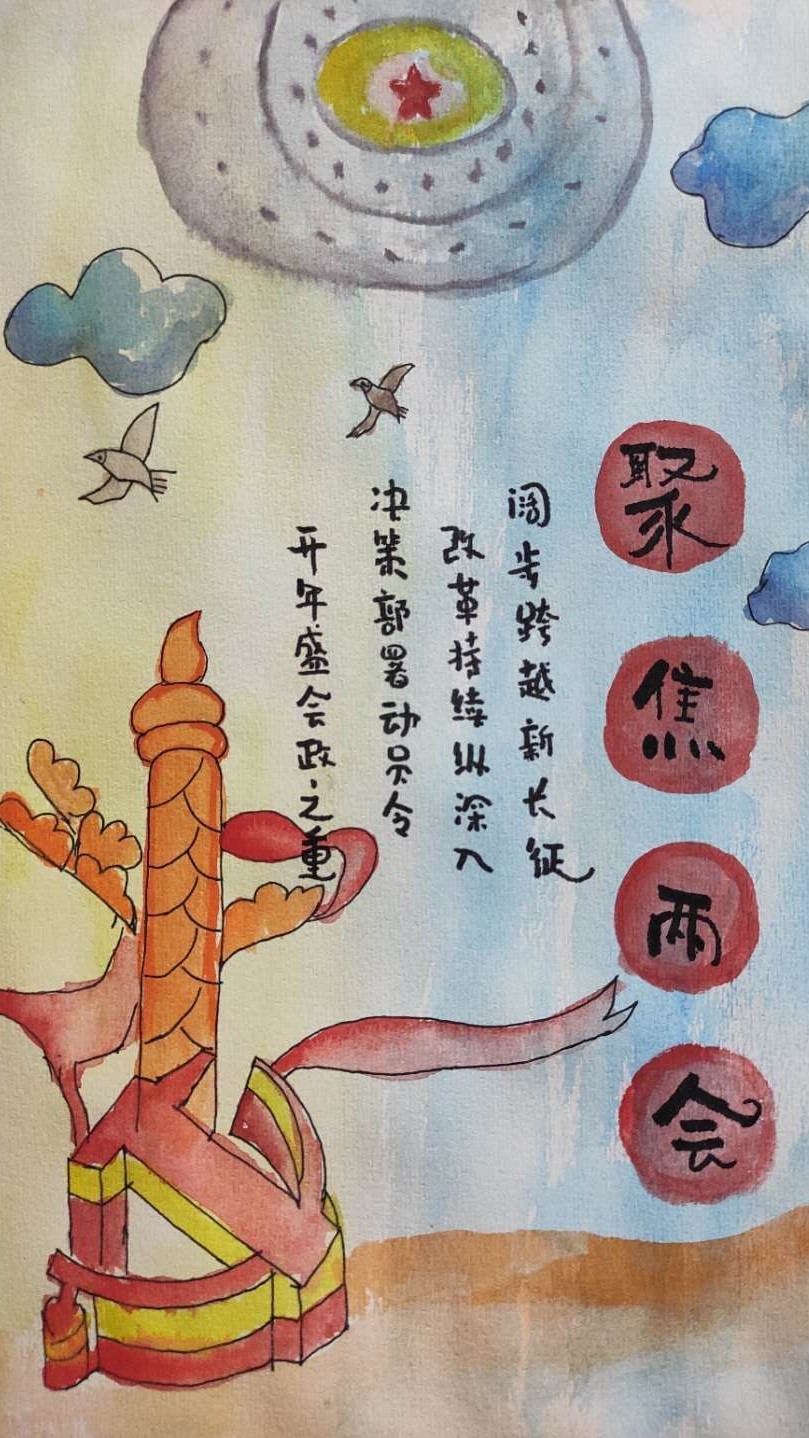 聚焦两会
阔步跨越新长征
改革持续纵深入
决策部署动员令
开年盛会政之重